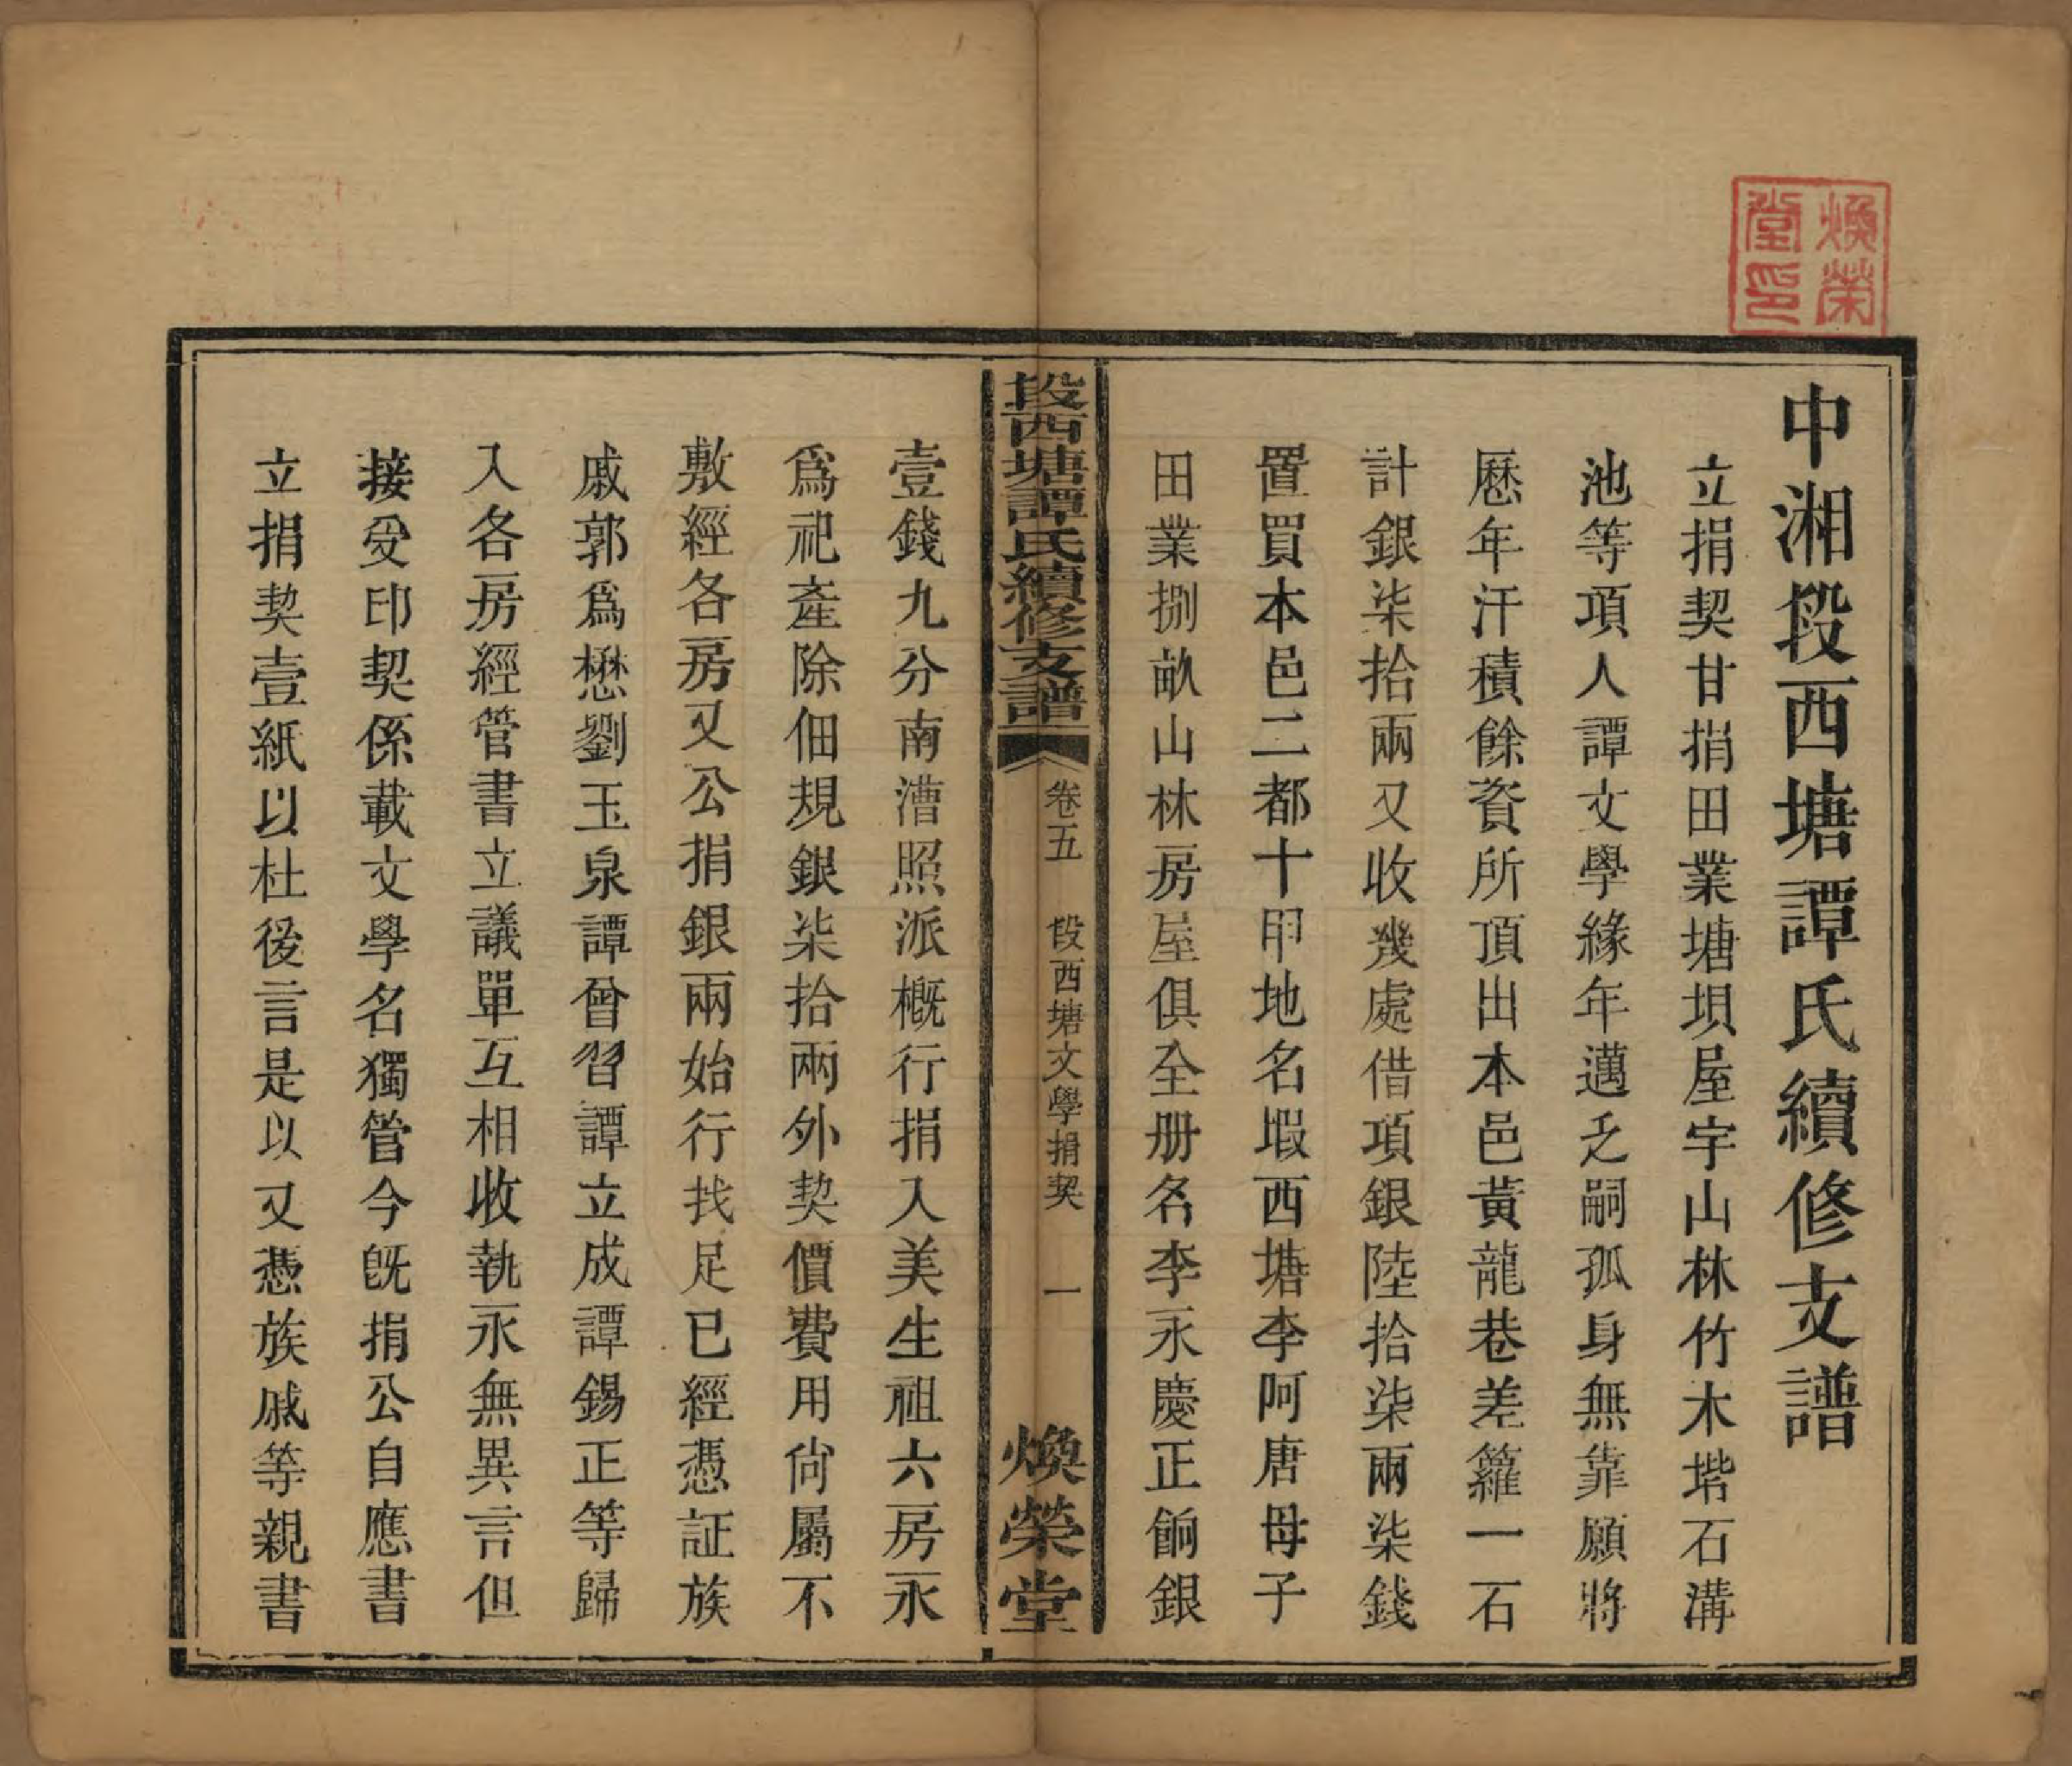 煥榮
堂印
中湘段西塘譚氏續修支譜
立捐契甘捐田業塘垻屋宇山林竹木堦石溝
池等項人譚文學緣年邁乏嗣孤身無靠願將
歷年汗積餘資所頂出本邑黃龍巷差籮一石
計銀柒拾兩又收幾處借項銀陸拾柒兩柒錢
置買本邑二都十甲地名塅西塘李阿唐母子
田業捌畝山林房屋俱全册名李永慶正餉銀
段西塘譚氏續修支譜
卷五　段西塘文學捐契　一
煥榮堂
壹錢九分南漕照派槪行捐入美生祖六房永
爲祀產除佃規銀柒拾兩外契價費用尙屬不
敷經各房又公捐銀兩始行找足已經憑証族
戚郭爲懋劉玉泉譚曾習譚立成譚錫正等歸
入各房經管書立議單互相收執永無異言但
接受印契係載文學名獨管今旣捐公自應書
立捐契壹紙以杜後言是以又憑族戚等親書